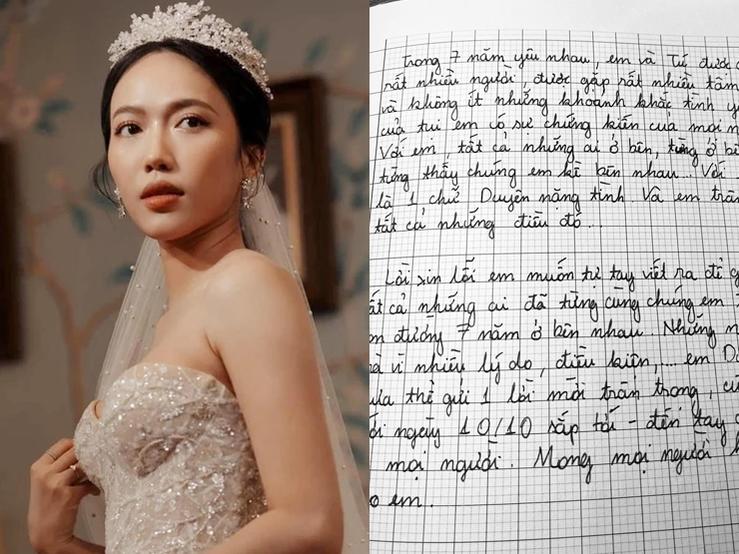 Trong 7 năm yêu nhau, em và Tú được
rất nhiều người, được gặp rất nhiều tâm
và không ít những khoảnh khắc tình
của tụi em có sự chứng kiến của mọi
Với em, tất cả những ai ở bên, từng ở
từng thấy chúng em kề bên nhau... Với
là 1 chữ Duyên nặng tình. Và em trân
tất cả những điều đó...
Lời xin lỗi em muốn tự tay viết ra để
tất cả những ai đã từng cùng chúng em
đường 7 năm ở bên nhau. Những
vì nhiều lý do, điều kiện,... em
thể gửi 1 lời mời trân trọng,
ngày 10/10 sắp tới - đến tay
mọi người. Mong mọi người
em.